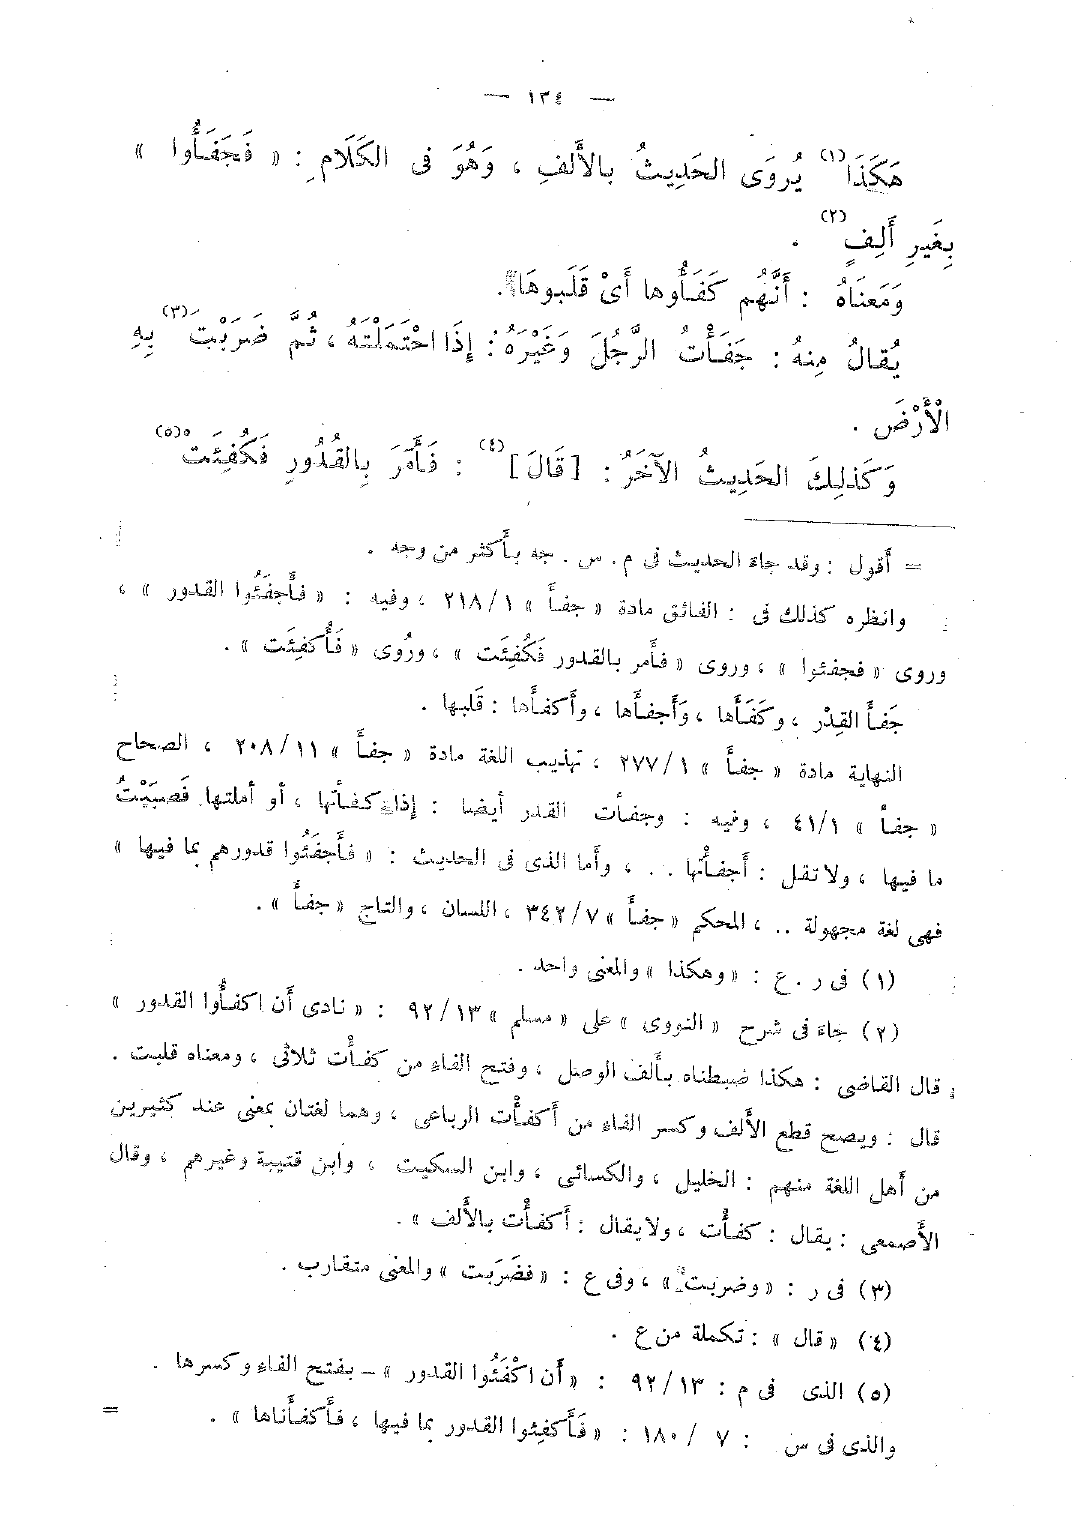 — ١٣٤ —
هَكَذَا(١) يُروَى الحَدِيثُ بالأَلفِ ، وَهُوَ فى الكَلَامِ : « فَجَفَأُوا »
بِغَيرِ أَلِفٍ(٢) .
وَمَعنَاهُ : أَنَّهُم كَفَأُوها أَىْ قَلَبوهَا .
يُقالُ مِنهُ : جَفَأْتُ الرَّجُلَ وَغَيْرَهُ : إِذَا احْتَمَلْتَهُ ، ثُمَّ ضَرَبْتَ(٣) بِهِ
الْأَرْضَ .
وَكَذلِكَ الحَدِيثُ الآخَرُ : [قَالَ](٤) : فَأَمَرَ بِالقُدُورِ فَكُفِئَتْ(٥)
= أقول : وقد جاء الحديث فى م . س . جه بأكثر من وجه .
وانظره كذلك فى : الفائق مادة « جفأ » ٢١٨/١ ، وفيه : « فأَجفَئُوا القدور » ،
وروى « فجفئوا » ، وروى « فأمر بالقدور فَكُفِئَت » ، ورُوى « فَأُكفِئَت » .
جَفأَ القِدْر ، وكَفَأَها ، وَأَجفأَها ، وأَكفأَها : قَلَبها .
النهاية مادة « جفأ » ٢٧٧/١ ، تهذيب اللغة مادة « جفأ » ٢٠٨/١١ ، الصحاح
« جفأ » ٤١/١ ، وفيه : وجفأت القدر أيضا : إذا كفأتها ، أو أملتها فَصبَبْتُ
ما فيها ، ولا تقل : أَجفأْتها . . ، وأما الذى فى الحديث : « فأَجفَئُوا قدورهم بما فيها »
فهى لغة مجهولة .. ، المحكم « جفأ » ٣٤٢/٧ ، اللسان ، والتاج « جفأ » .
(١) فى ر . ع : « وهكذا » والمعنى واحد .
(٢) جاء فى شرح « النووى » على « مسلم » ٩٢/١٣ : « نادى أَن اكفأُوا القدور »
قال القاضى : هكذا ضبطناه بأَلف الوصل ، وفتح الفاء من كفأْت ثلاثى ، ومعناه قلبت .
قال : ويصح قطع الأَلف وكسر الفاء من أَكفأْت الرباعى ، وهما لغتان بمعنى عند كثيرين
من أَهل اللغة منهم : الخليل ، والكسائى ، وابن السكيت ، وابن قتيبة وغيرهم ، وقال
الأَصمعى : يقال : كفأْت ، ولايقال : أَكفأْت بالأَلف » .
(٣) فى ر : « وضربت » ، وفى ع : « فضَرَبت » والمعنى متقارب .
(٤) « قال » : تكملة من ع .
(٥) الذى فى م : ٩٢/١٣ : « أَن اكْفَئُوا القدور » – بفتح الفاء وكسرها .
والذى فى س : ٧ / ١٨٠ : « فَأَكفِئوا القدور بما فيها ، فأَكفأَناها » . =